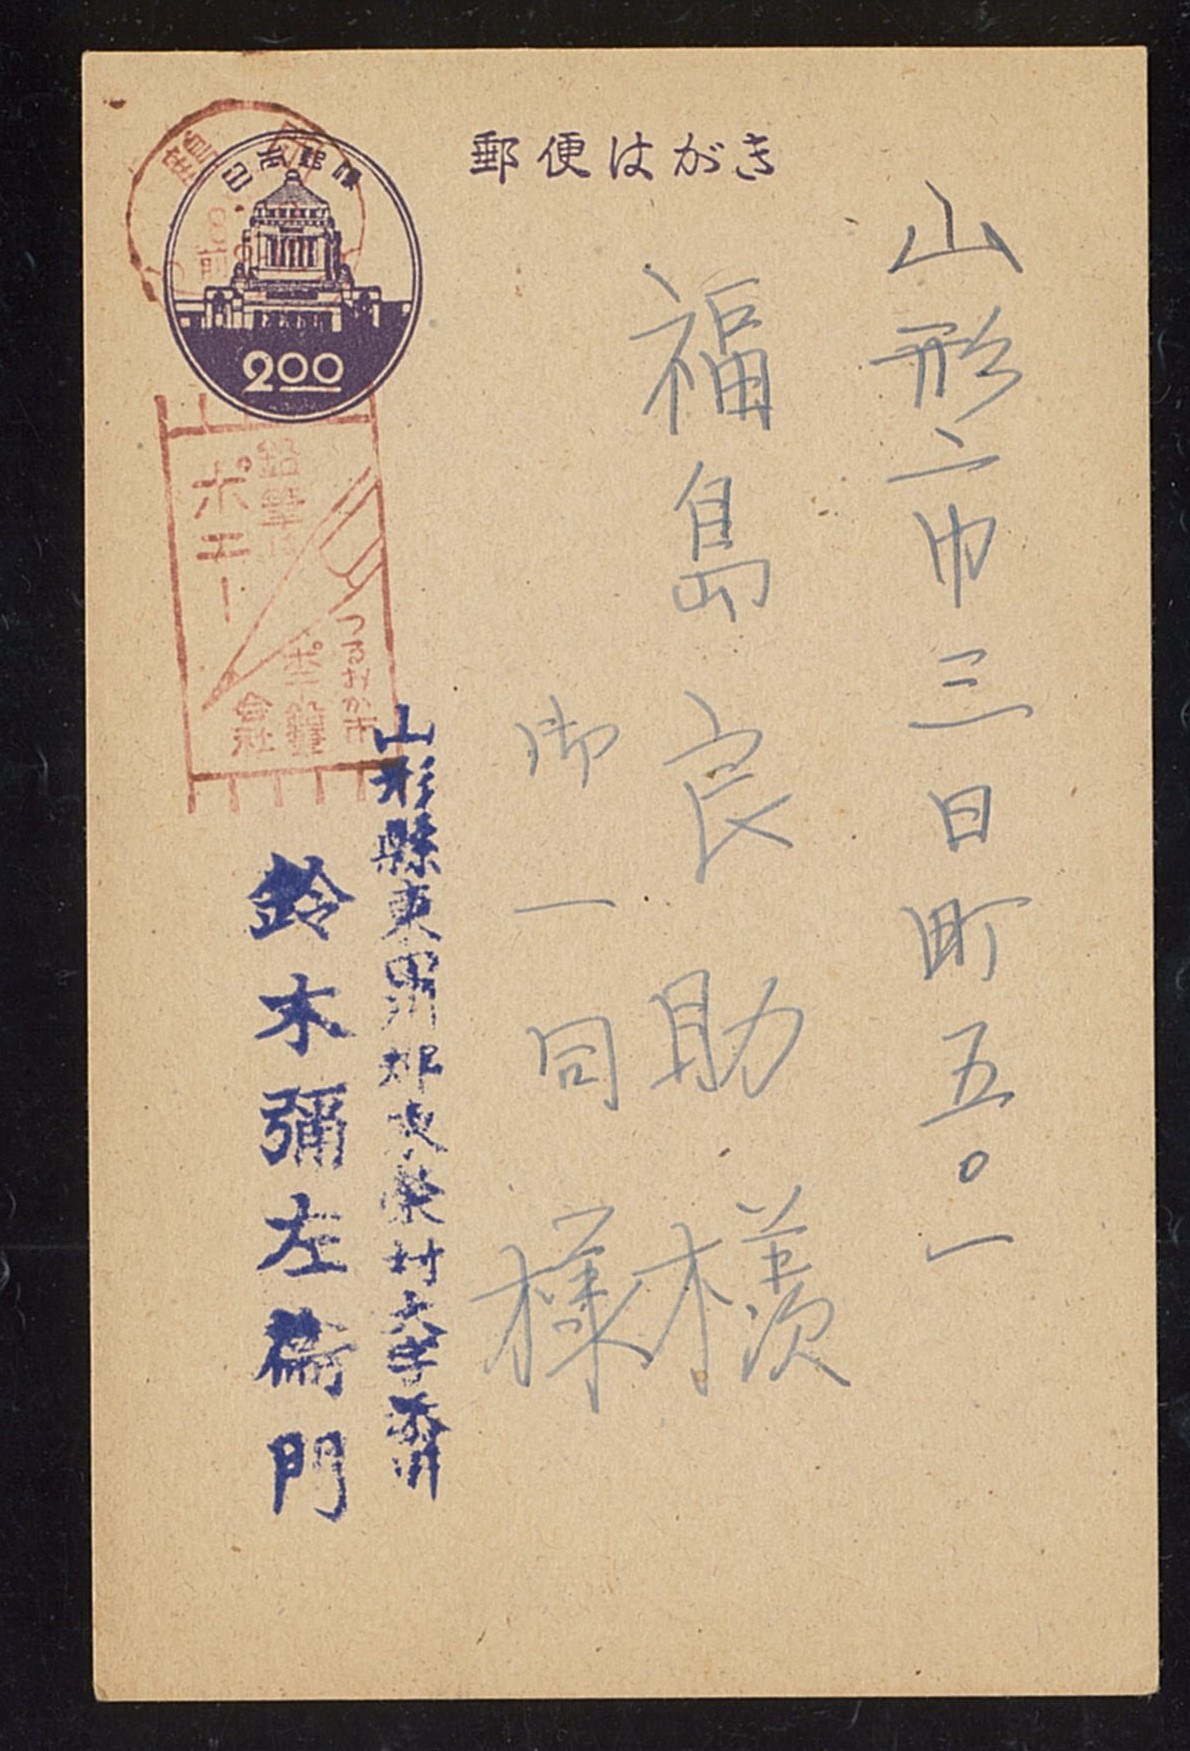 郵便はがき
日本郵便
2.00
前
鉛筆は
ポエー
つるおか市
ポエー鉛筆
会社
山形市三日町五〇一
福島良助様
御一同様
山形縣東田川郡東栄村大字添川
鈴木彌左衛門